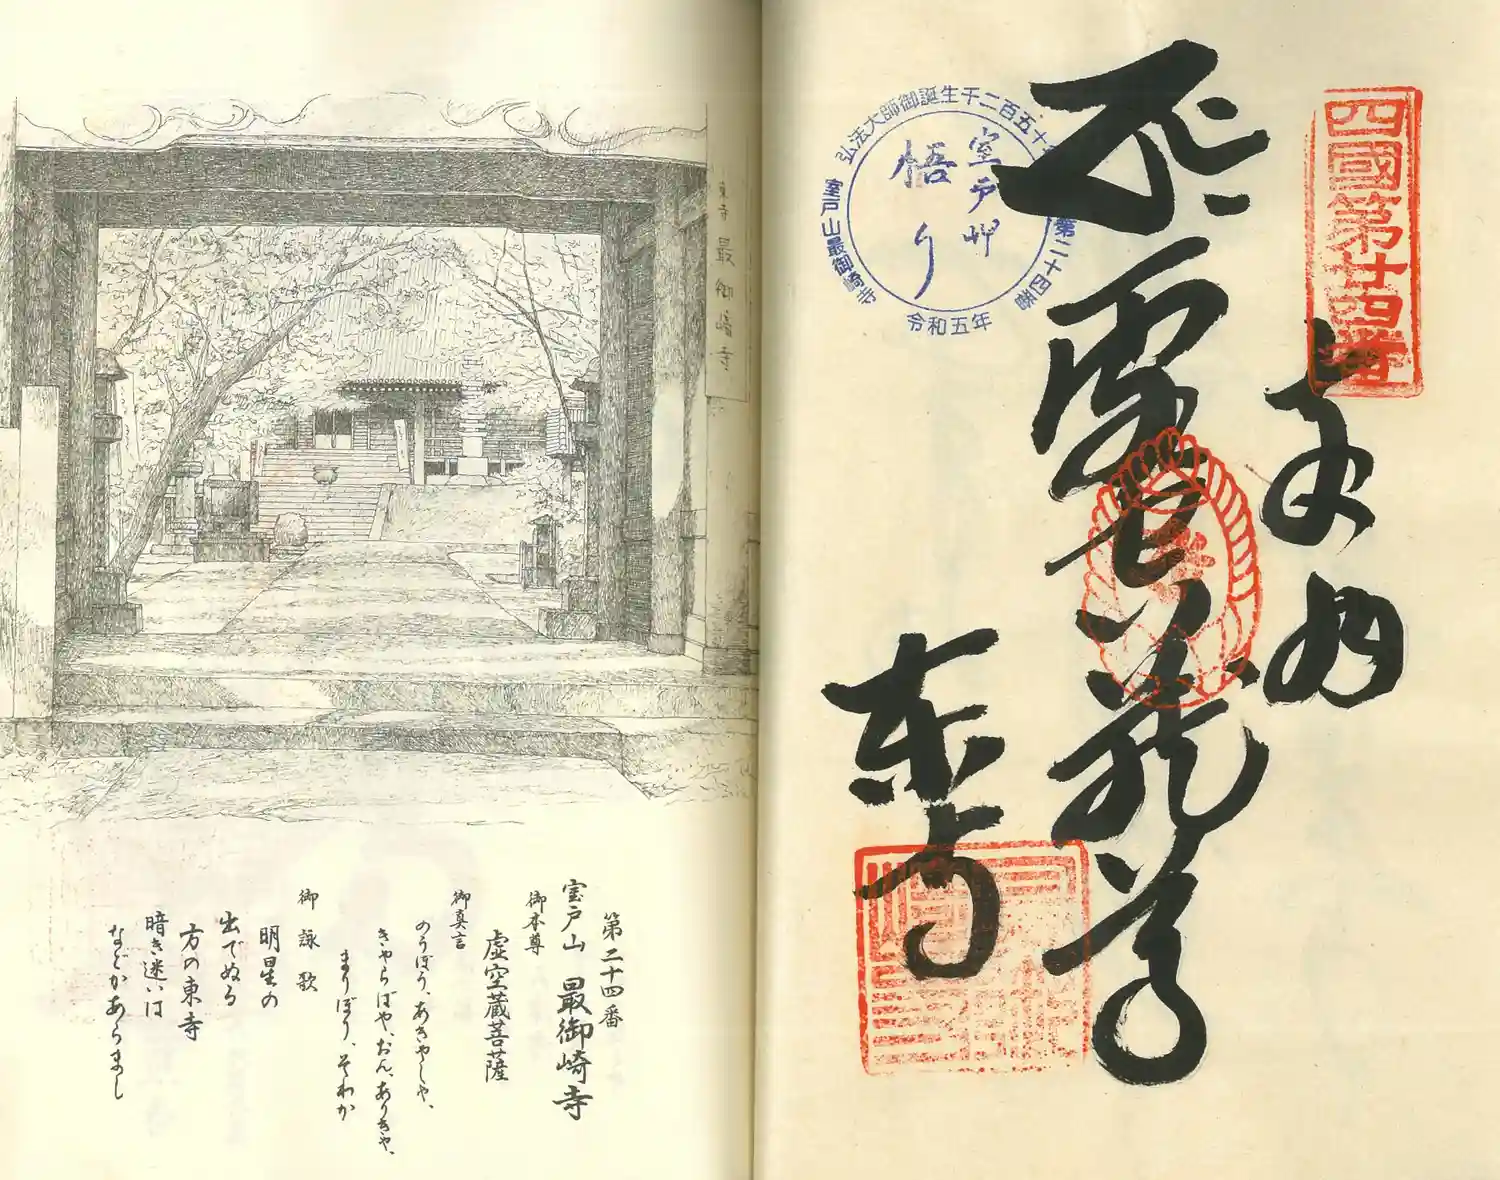 東寺 最御崎寺
第二十四番
室戸山 最御崎寺
御本尊
虚空蔵菩薩
御真言
のうぼう、あきゃしゃ、
きゃらばや、おん、ありきゃ、
まりぼり、そわか
御詠歌
明星の
出でぬる
方の東寺
暗き迷いは
などかあらまし
四國第廿四番
奉納
虚空蔵
東寺
弘法大師御誕生千二百五十
第二十四番
室戸山最御崎寺
令和五年
室戸岬
悟り